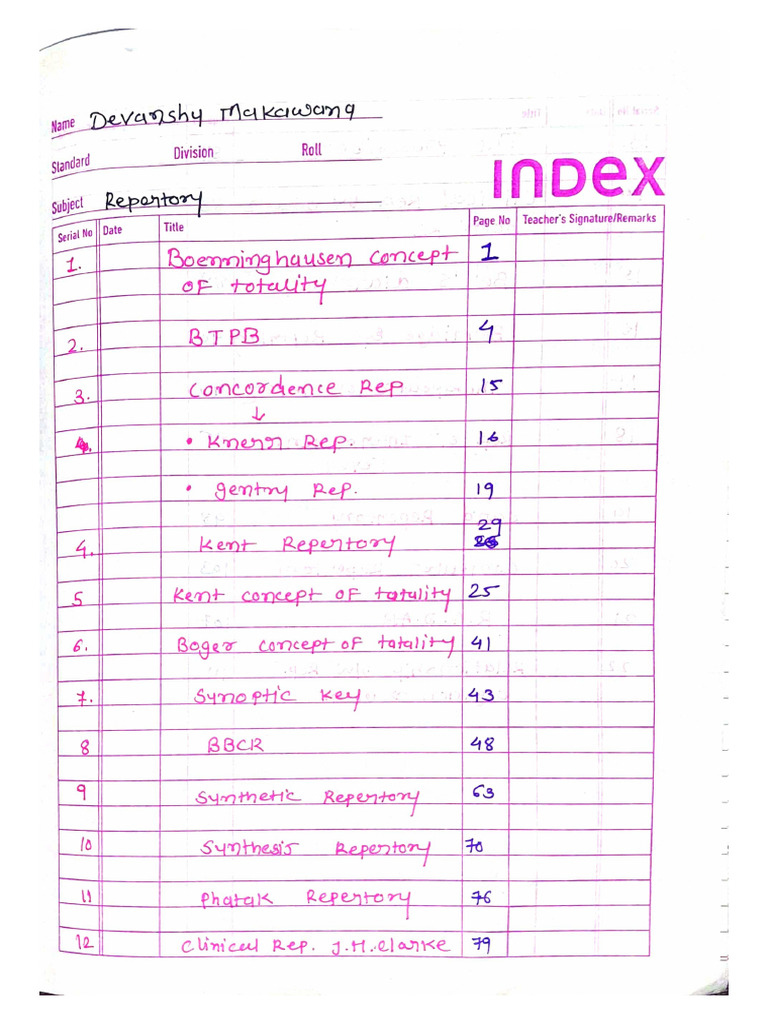 Name Devanshy Makawana
Standard Division Roll
INDEX
Subject Repertory
Serial No Date Title Page No Teacher's Signature/Remarks
1. Boenninghausen concept 1
of totality
2. BTPB 4
3. Concordence Rep 15
↓
• Knerr Rep. 16
• gentry Rep. 19
29
4. Kent Repertory
5 Kent concept of totality 25
6. Boger concept of totality 41
7. Synoptic Key 43
8 BBCR 48
9 Synthetic Repertory 63
10 Synthesis Repertory 70
11 Phatak Repertory 76
12 Clinical Rep. J.H.Clarke 79